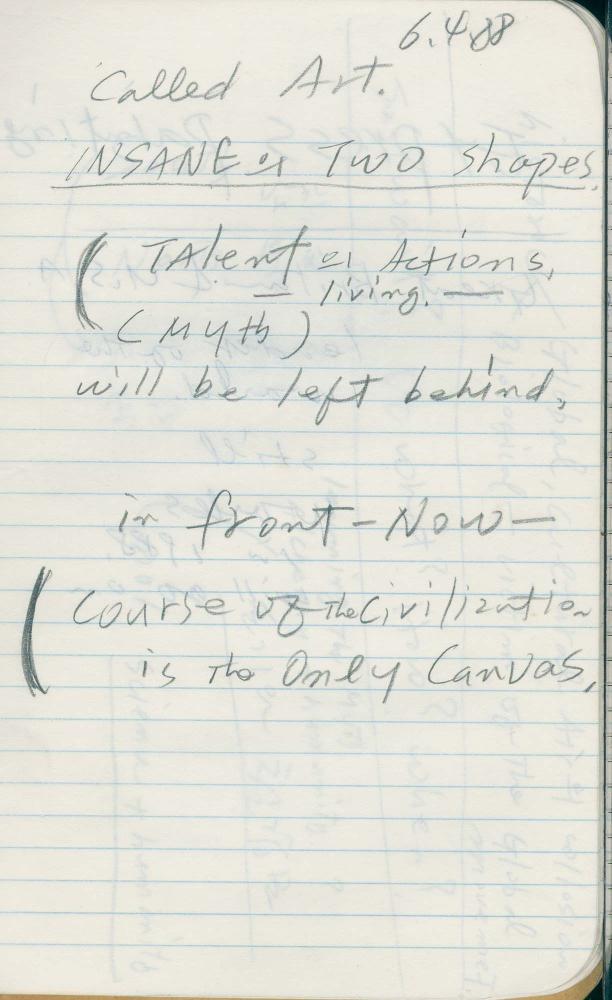 6.4.88
Called Art.
INSANE of TWO shapes.
( TAlent of Actions,
— living. —
(Myth)
will be left behind,
in front - Now —
( Course of The Civilization
is The Only Canvas,